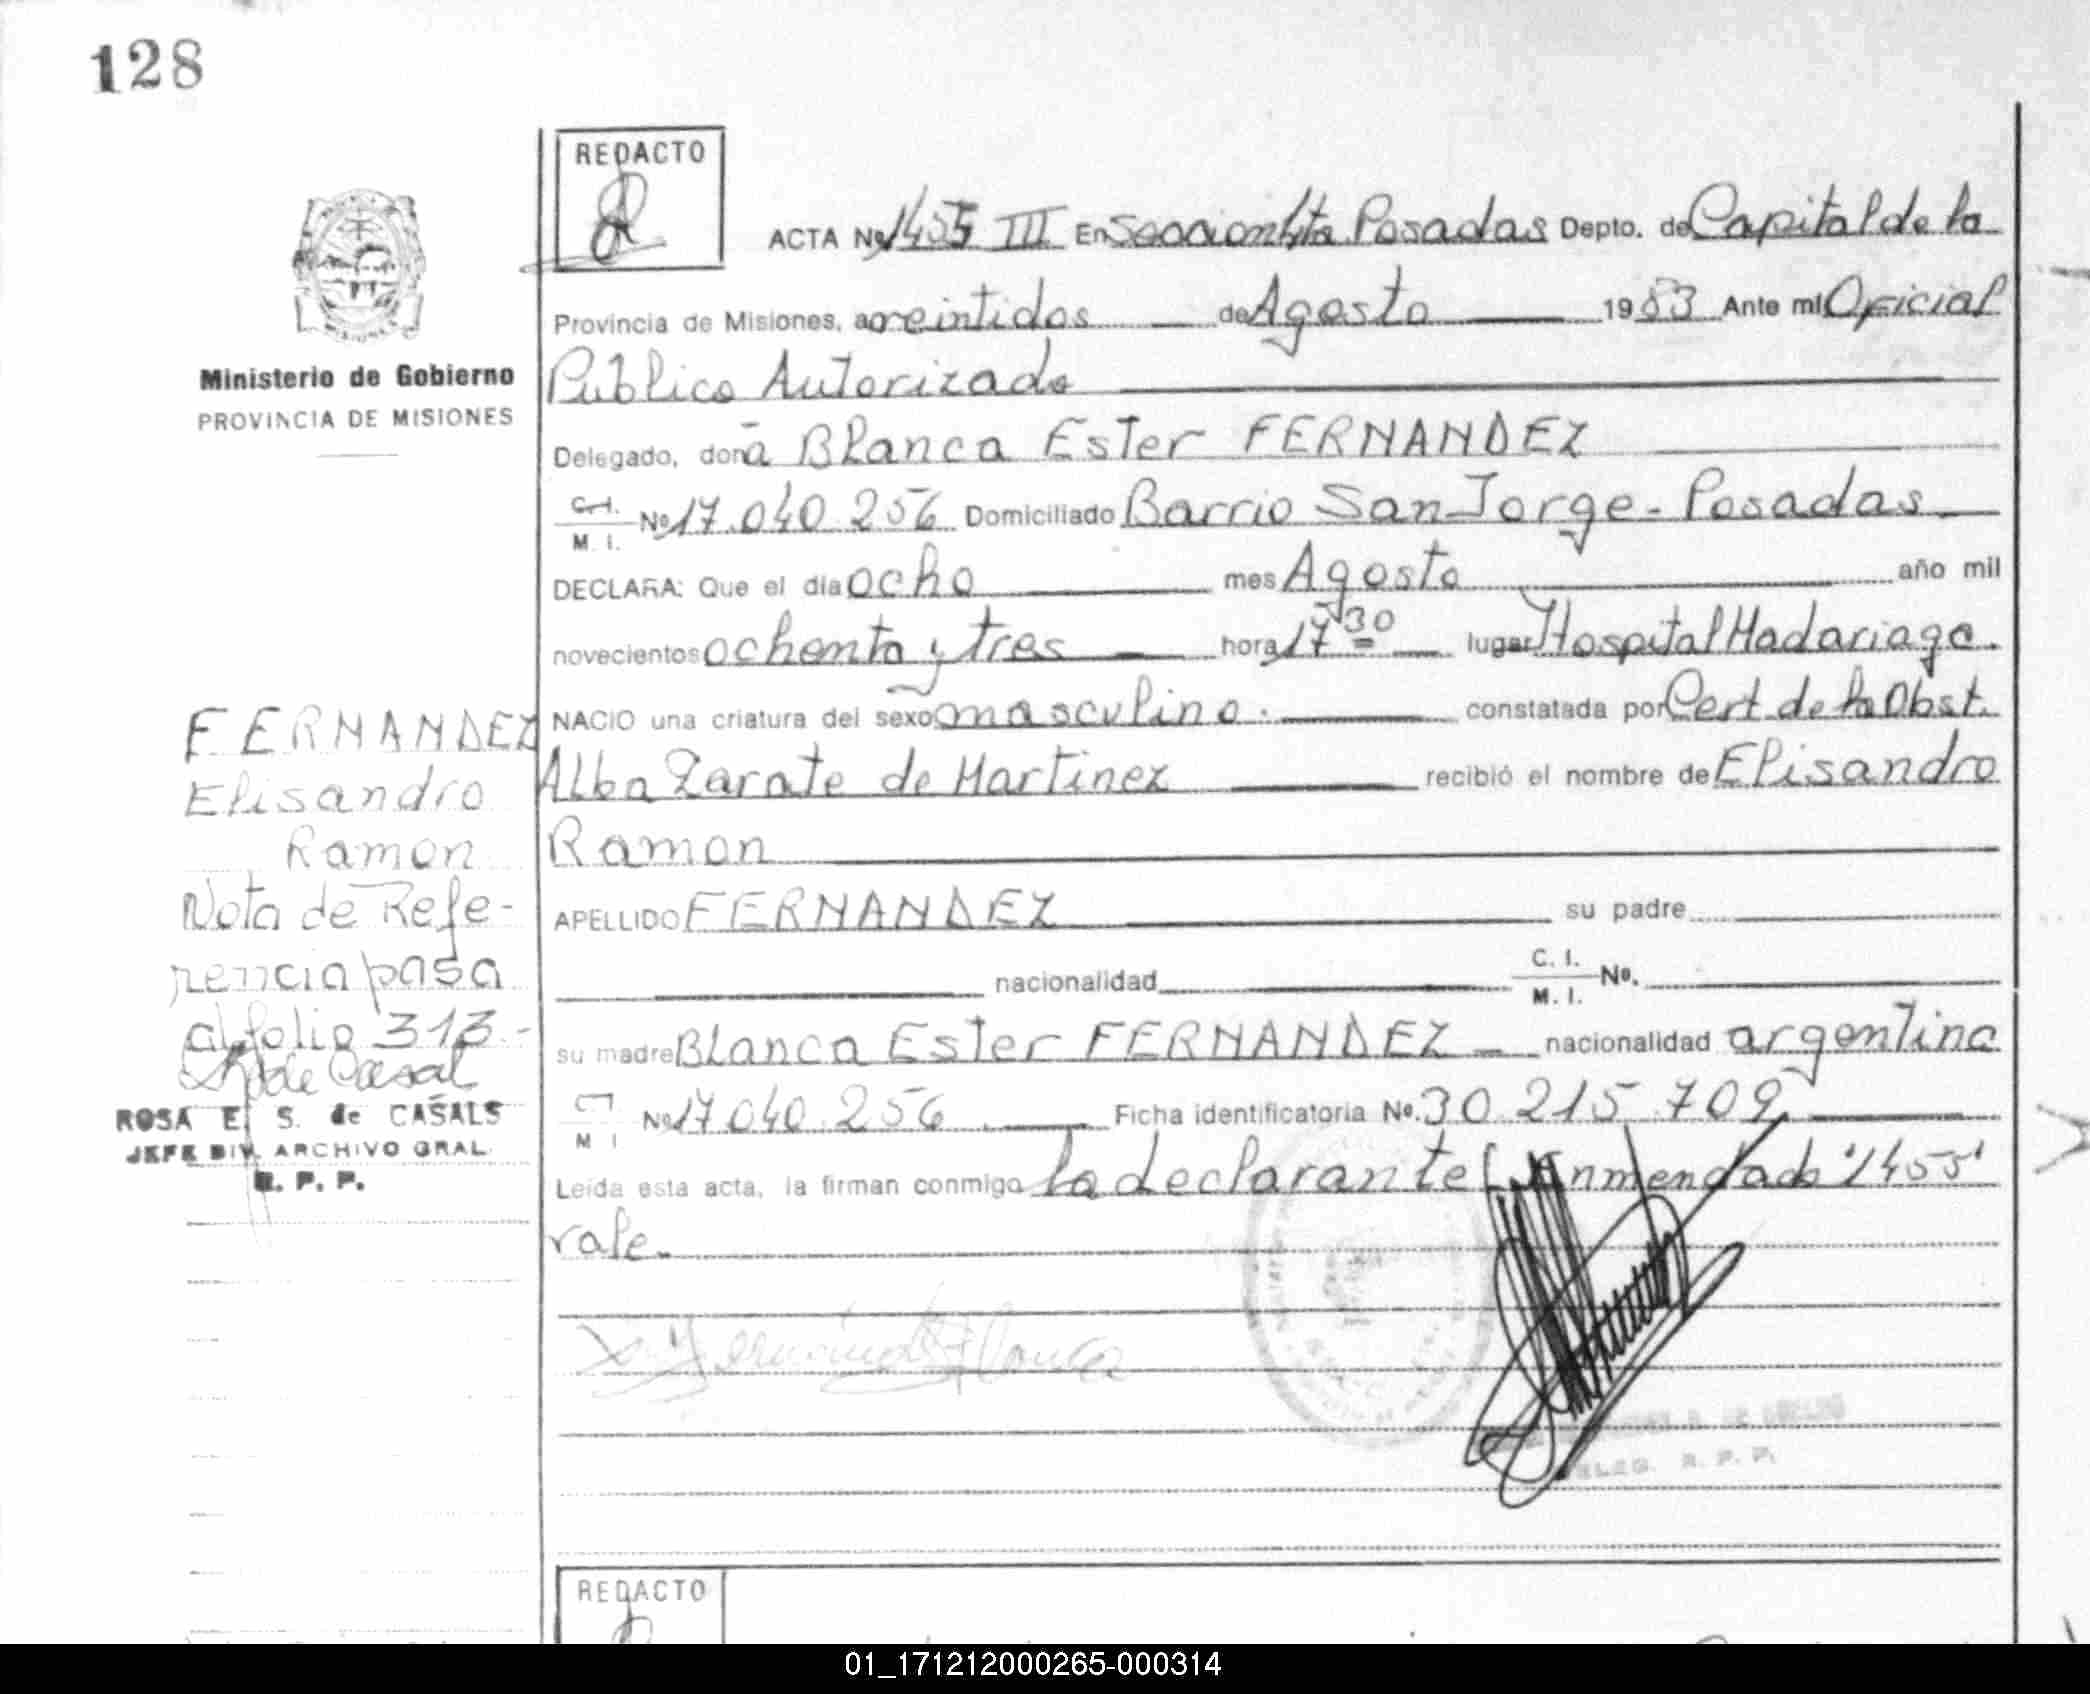 128
REDACTO
ACTA Nº 1455 III En Seccion 4ta Posadas Depto. de Capital de la
Provincia de Misiones, a veintidos de Agosto 1983 Ante mi Oficial
Publico Autorizado
Ministerio de Gobierno
PROVINCIA DE MISIONES
Delegado, doña Blanca Ester FERNANDEZ
C. I.
M. I.
Nº 17.040.256 Domiciliado Barrio San Jorge - Posadas
DECLARA: Que el día ocho mes Agosto año mil
novecientos ochenta y tres hora 17 30 lugar Hospital Madariaga.
NACIO una criatura del sexo masculino. constatada por Cert. de la Obst.
Alba Zarate de Martinez recibió el nombre de Elisandro
Ramon
APELLIDO FERNANDEZ su padre
nacionalidad C. I.
M. I. Nº.
su madre Blanca Ester FERNANDEZ nacionalidad argentina
M I Nº 17.040.256 Ficha identificatoria Nº. 30.215.709
Leída esta acta, la firman conmigo la declarante Enmendado "1455"
vale.
FERNANDEZ
Elisandro
Ramon
Nota de Refe-
rencia pasa
al folio 313.-
ROSA E. S. de CASALS
JEFE DIV. ARCHIVO GRAL.
R. P. P.
Fernandez Blanca
DELEG. R. P. P.
REDACTO
01_171212000265-000314